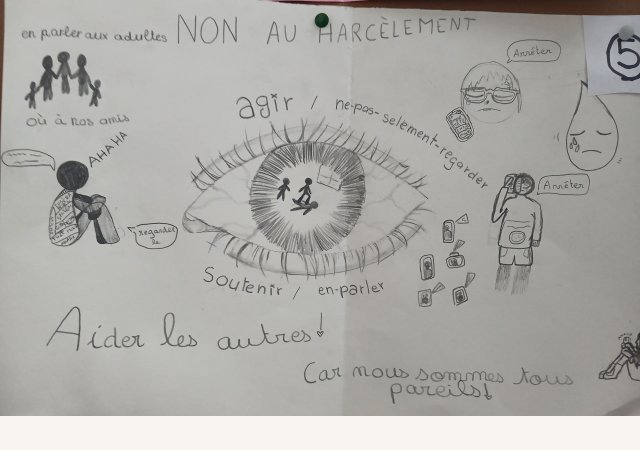 en parler aux adultes
NON AU HARCÈLEMENT
Arrêter
5
où à nos amis
agir / ne-pas-selement-regarder
AHAHA
Arrêter
regarder
le
Soutenir / en-parler
Aider les autres!
Car nous sommes tous
pareils!